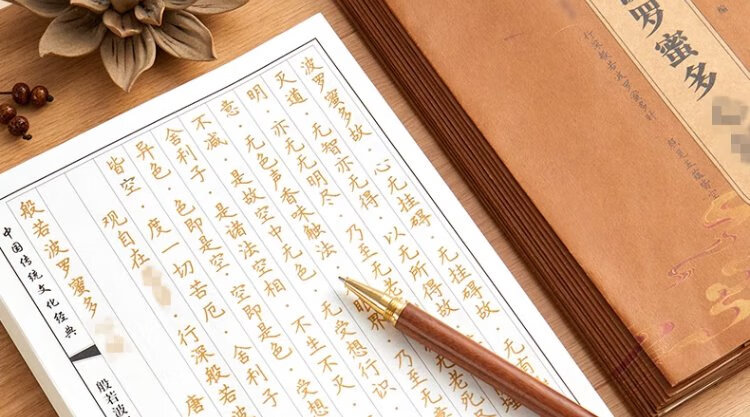 中国传统文化经典
般若波
般若波罗蜜多
唐
观自在
行深般若波
皆空·度一切苦厄·舍利子
异色·色即是空·空即是色·受想
舍利子·是诸法空相·不生不灭
不减·是故空中无色·无受想行识
意·无色声香味触法
界·乃至无
明·亦无无明尽·乃至无老死
灭道·无智亦无得·以无所得故
波罗蜜多故·心无挂碍·无挂碍故·无有
罗蜜多
编
行深般若波罗蜜多时
照见五蕴皆空